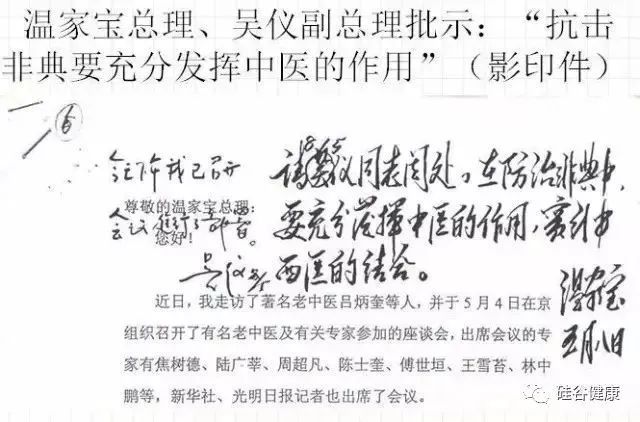 温家宝总理、吴仪副总理批示：“抗击
非典要充分发挥中医的作用”（影印件）
6
请吴仪同志阅处，在防治非典中，
要充分发挥中医的作用，实行中
西医的结合。
温家宝
五月八日
今下午我已召开
会议进行了部署。
吴仪
尊敬的温家宝总理：
您好！
近日，我走访了著名老中医吕炳奎等人，并于5月4日在京
组织召开了有名老中医及有关专家参加的座谈会，出席会议的专
家有焦树德、陆广莘、周超凡、陈士奎、傅世垣、王雪苔、林中
鹏等，新华社、光明日报记者也出席了会议。
硅谷健康